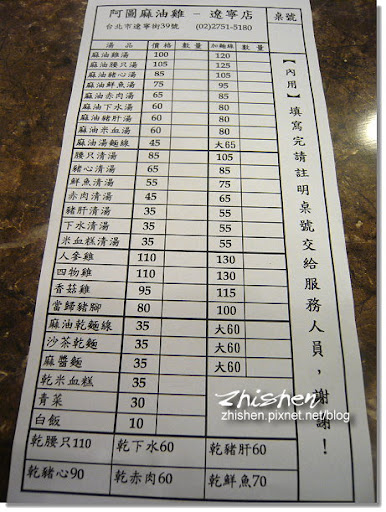 阿圖麻油雞 - 遼寧店 桌號
台北市遼寧街39號 (02)2751-5180
湯品 價格 數量 加麵線 數量
麻油雞湯 100 120
麻油腰只湯 105 125
麻油豬心湯 85 105
麻油鮮魚湯 75 95
麻油赤肉湯 65 85
麻油下水湯 60 80
麻油豬肝湯 60 80
麻油米血湯 60 80
麻油湯麵線 45 大65
腰只清湯 85 105
豬心清湯 65 85
鮮魚清湯 55 75
赤肉清湯 45 65
豬肝清湯 35 55
下水清湯 35 55
米血糕清湯 35 55
人參雞 110 130
四物雞 110 130
香菇雞 95 115
當歸豬腳 80 100
麻油乾麵線 35 大60
沙茶乾麵 35 大60
麻醬麵 35 大60
乾米血糕 35
青菜 30
白飯 10
乾腰只110 乾下水60 乾豬肝60
乾豬心90 乾赤肉60 乾鮮魚70
【內用】填寫完請註明桌號交給服務人員，謝謝！
Zhishen
zhishen.pixnet.net/blog